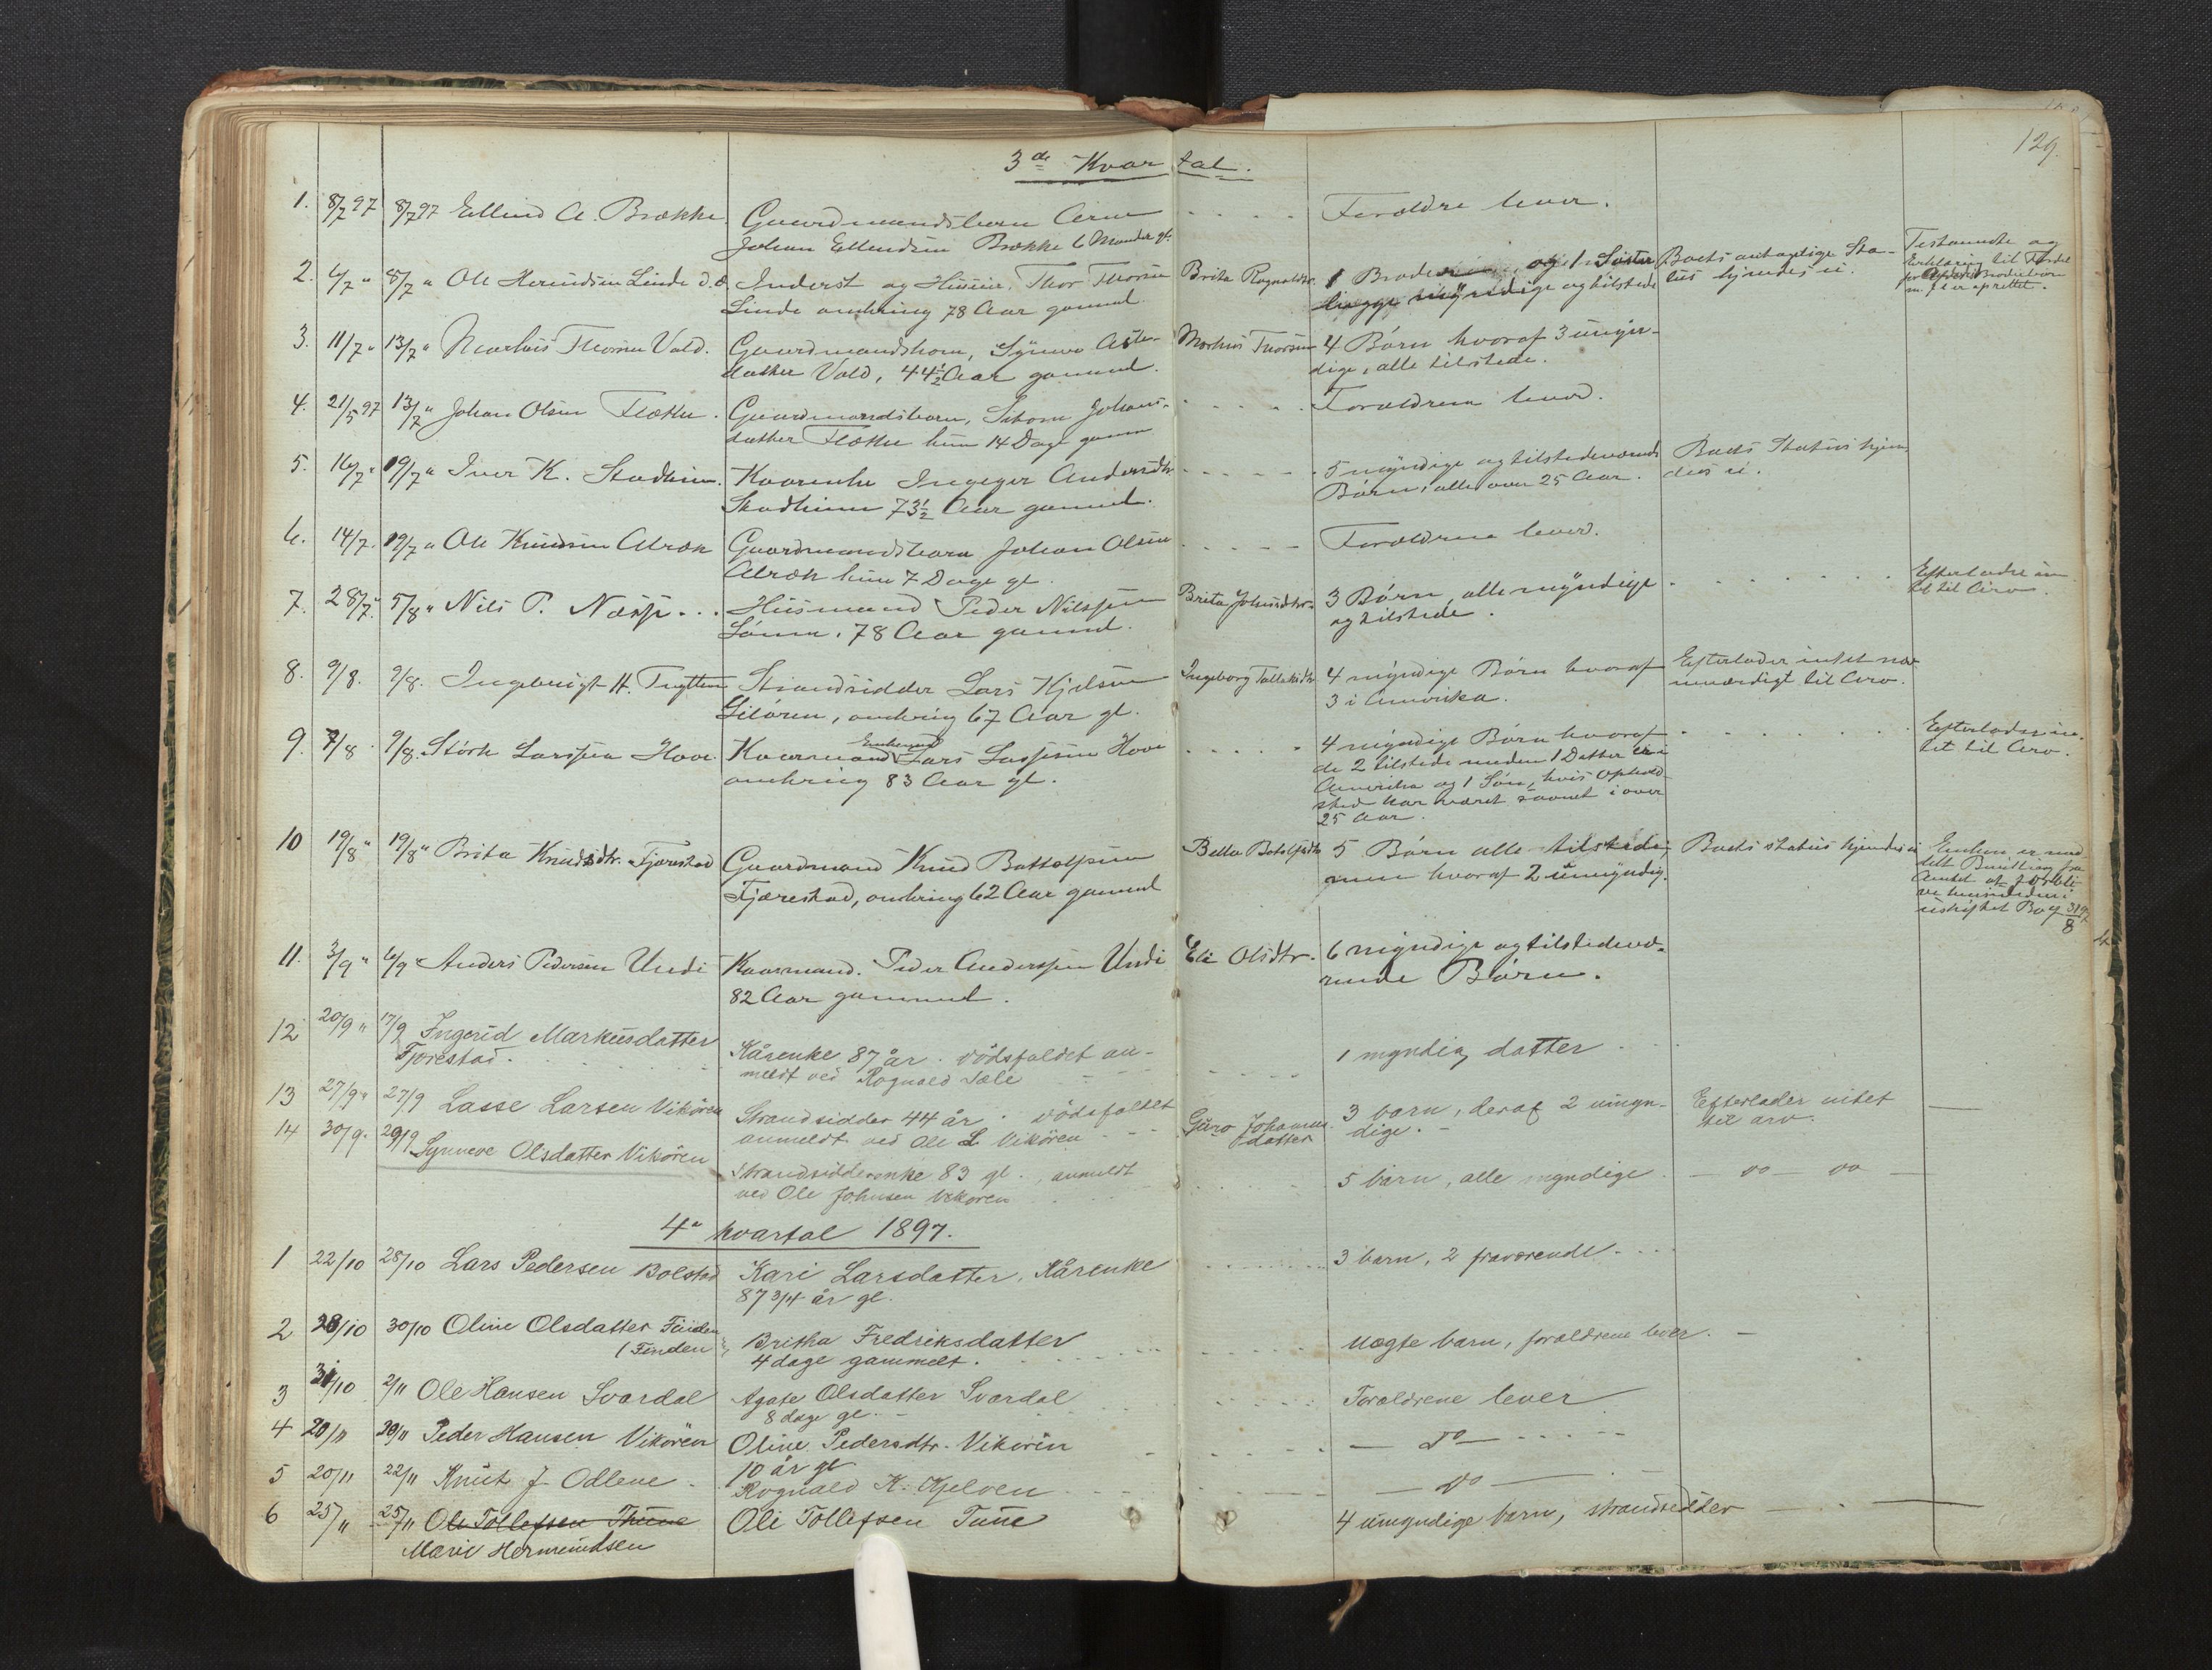 129.
3de Kvartal.
1. 8/7 97 8/7 97 Ellend A. Brække. Gaardmandsbarn Arne - - - - Forældre lever.
Johan Ellendsen Brække 6 Maander gl.
2. 6/7 " 8/7 " Ole Hermundsen Linde d.æ. Inderst og Thor Thorsen Brita Rognaldsd. 1 Broder og 1 Søster Boets antagelige Sta- Testamente og
Linde omkring 78 Aar gammel begge myndige og tilstede tus kjendes ei. Erklæring til
er oprettet.
3. 11/7 " 13/7 " Markus Thorsen Vold. Gaardmandskone, Synneva
datter Vold, 44½ Aar gammel. Markus Thorsen 4 Børn hvoraf 3 umyn-
dige, alle tilstede.
4. 21/5 97 13/7 " Johan Olsen Flæte. Gaardmandsbarn, Johans- - - - - Forældrene lever.
datter kun 14 Dage gammel
5. 16/7 " 19/7 " Iver K. Stadheim. Kaarenke Ingeger Andersdtr. - - - - 5 myndige og tilstedeværende Boets Status kjen-
Stadheim 73½ Aar gammel. Børn, alle over 25 Aar. des ei.
6. 14/7. 19/7 " Ole Knudsen Alræk Gaardmandsbarn Johan Olsen - - - - Forældrene lever.
Alræk kun 7 Dage gl.
7. 28/7. 5/8 " Nils P. Næsse... Husmand Peder Nilssen Brita Johansdtr. 3 Børn, alle myndige - - - - Efterlader in-
78 Aar gammel. og tilstede. tet til Arv.
8. 9/8. 9/8. Ingebrigt H. Tryttne Strandsidder Lars Kjelsen Ingeborg Tollaksdtr. 4 myndige Børn hvoraf Efterlader intet næv-
omkring 67 Aar gl. 3 i Amerika. neværdigt til Arv.
9. 7/8. 9/8. Størk Larssen Hove. Kaarmand Enkemand Lars Lassesen Hove - - - - 4 myndige Børn hvoraf - - - - Efterlader in-
omkring 83 Aar gl. de 2 tilstede meden 1 Datter er i tet til Arv.
Amerika og 1 Søn, hvis Ophold-
sted har været savnet i over
25 Aar.
10 19/8 " 19/8 " Brita Knudsdtr. Fjærestad Gaardmand Knud Bottolfsen 5 Børn alle tilstede, Boets status kjendes ei Enken er med-
Fjærestad, omkring 62 Aar gammel men hvoraf 2 umyndig. delt Bevilling fra
Amtet
uskiftet Bo
11. 3/9 " 6/9 " Anders Pedersen Undi Kaarmand. Peder Anderssen Undi Eli Olsdtr. 6 myndige og tilstedevæ-
82 Aar gammel. rende Børn.
12 20/9 " 17/9 Ingerid Markusdatter
Fjorestad. Kårenke 87 år. dödsfaldet an- 1 myndig datter
meldt ved Rognald Tåle
13 27/9 " 27/9 Lasse Larsen Vikören Strandsidder 44 år. dödsfaldet Guro Johannes- 3 barn, deraf 2 umyn- Efterlader intet
anmeldt ved Ole L Vikören datter dige. til arv.
14 30/9. 29/9 Synneve Olsdatter Vikören Strandsidderenke 83 gl., anmeldt 5 barn, alle myndige. — do — do —
ved Ole Johnsen Vikören
4de kvartal 1897.
1 22/10 28/10 Lars Pedersen Bolstad Kari Larsdatter, Kårenke 3 barn, 2 fraværende.
87 3/4 år gl.
2 28/10 30/10 Oline Olsdatter Finden
(Finden Britha Fredriksdatter Uægte barn, forældrene lever.
4 dage gammelt.
3 31/10 2/11 Ole Hansen Svardal Agate Olsdatter Svardal Forældrene lever
8 dage gl.
4 20/11 20/11 Peder Hansen Vikören Oline Pedersdtr. Vikören — do —
10 år gl
5 20/11 22/11 Knut J Odlene. Rognald K. Kjelven — do —
6 25/11 25/11 Ole Tollefsen Thune Oli Tollefsen Tune 4 umyndige barn, strandsidder
Marie Hermundsen